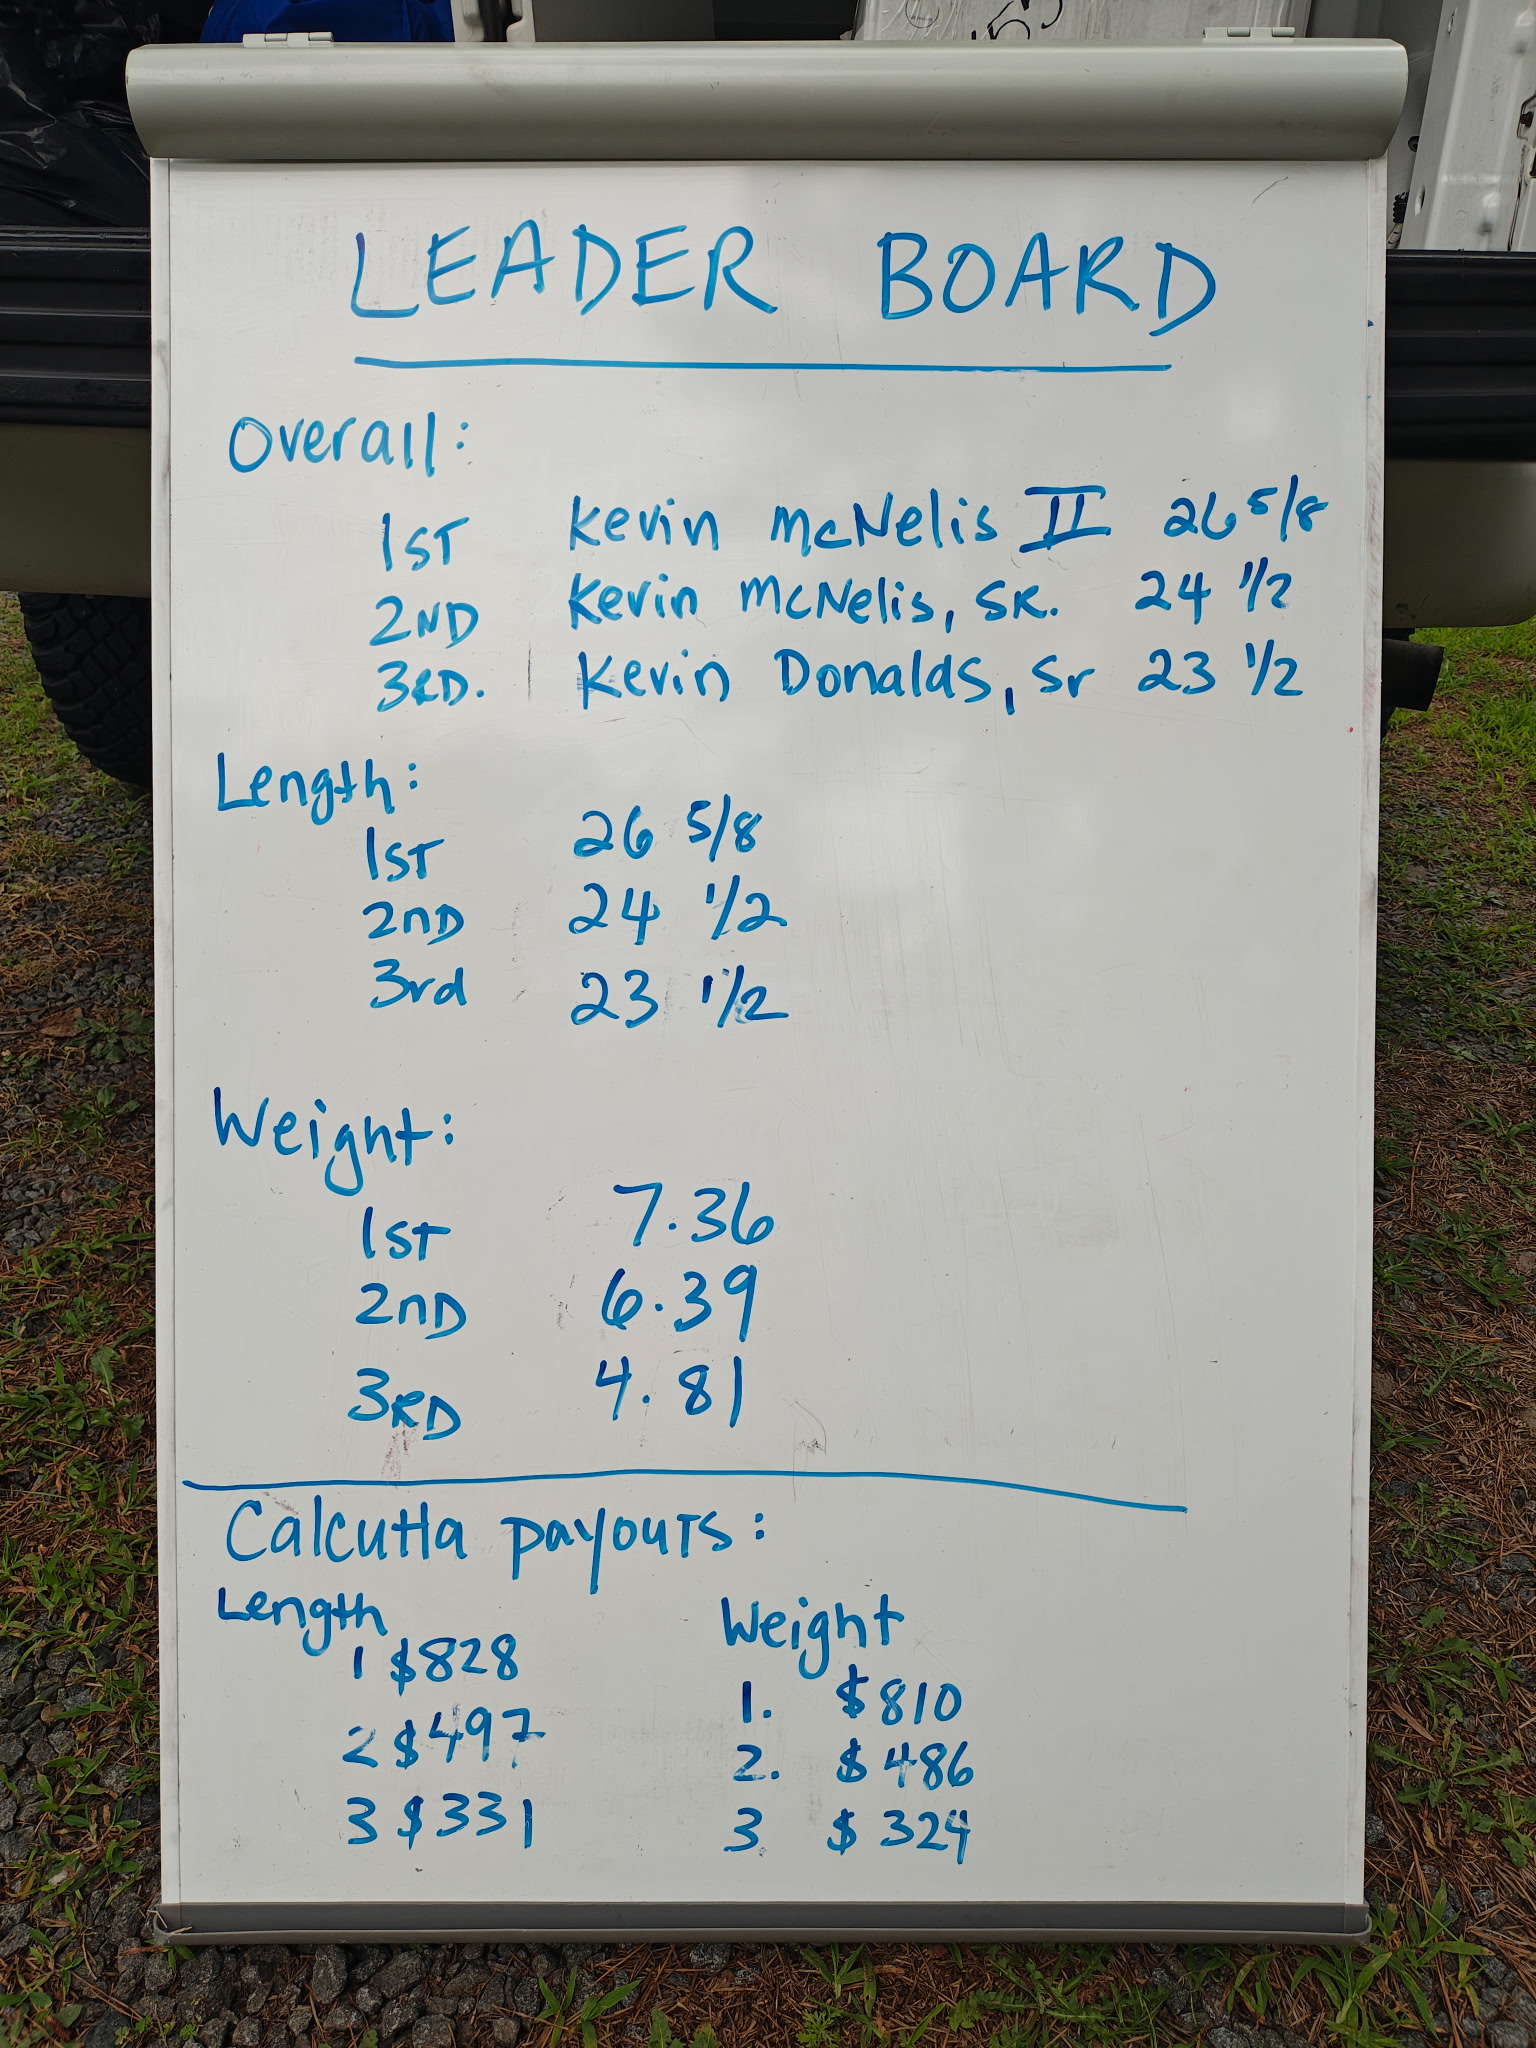 LEADER BOARD
Overall:
1ST Kevin McNelis II 26 5/8
2ND Kevin McNelis, SR. 24 1/2
3RD. Kevin Donalds, Sr 23 1/2
Length:
1ST 26 5/8
2nD 24 1/2
3rd 23 1/2
Weight:
1ST 7.36
2nD 6.39
3RD 4.81
Calcutta payouts:
Length
1 $828
2 $497
3 $331
Weight
1. $810
2. $486
3. $324